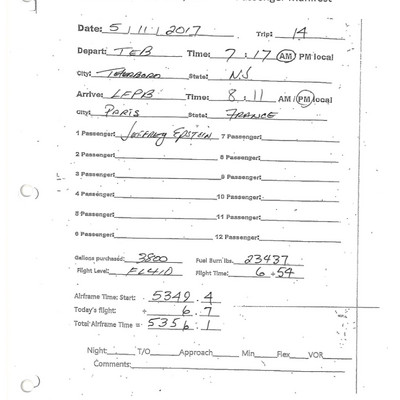 Passenger Manifest
Date: 5 / 11 / 2017 Trip: 14
Depart: TEB Time: 7:17 AM PM local
City: Teterboro State: NJ
Arrive: LFPB Time: 8:11 AM / PM local
City: PARIS State: FRANCE
1 Passenger: Jeffrey Epstein 7 Passenger:
2 Passenger: 8 Passenger:
3 Passenger: 9 Passenger:
4 Passenger: 10 Passenger:
5 Passenger: 11 Passenger:
6 Passenger: 12 Passenger:
Gallons purchased: 3800 Fuel Burn lbs. 23437
Flight Level: FL410 Flight Time: 6 + 54
Airframe Time: Start: 5349.4
Today's flight: + 6.7
Total Airframe Time = 5356.1
Night: T/O Approach Min Flex VOR
Comments: